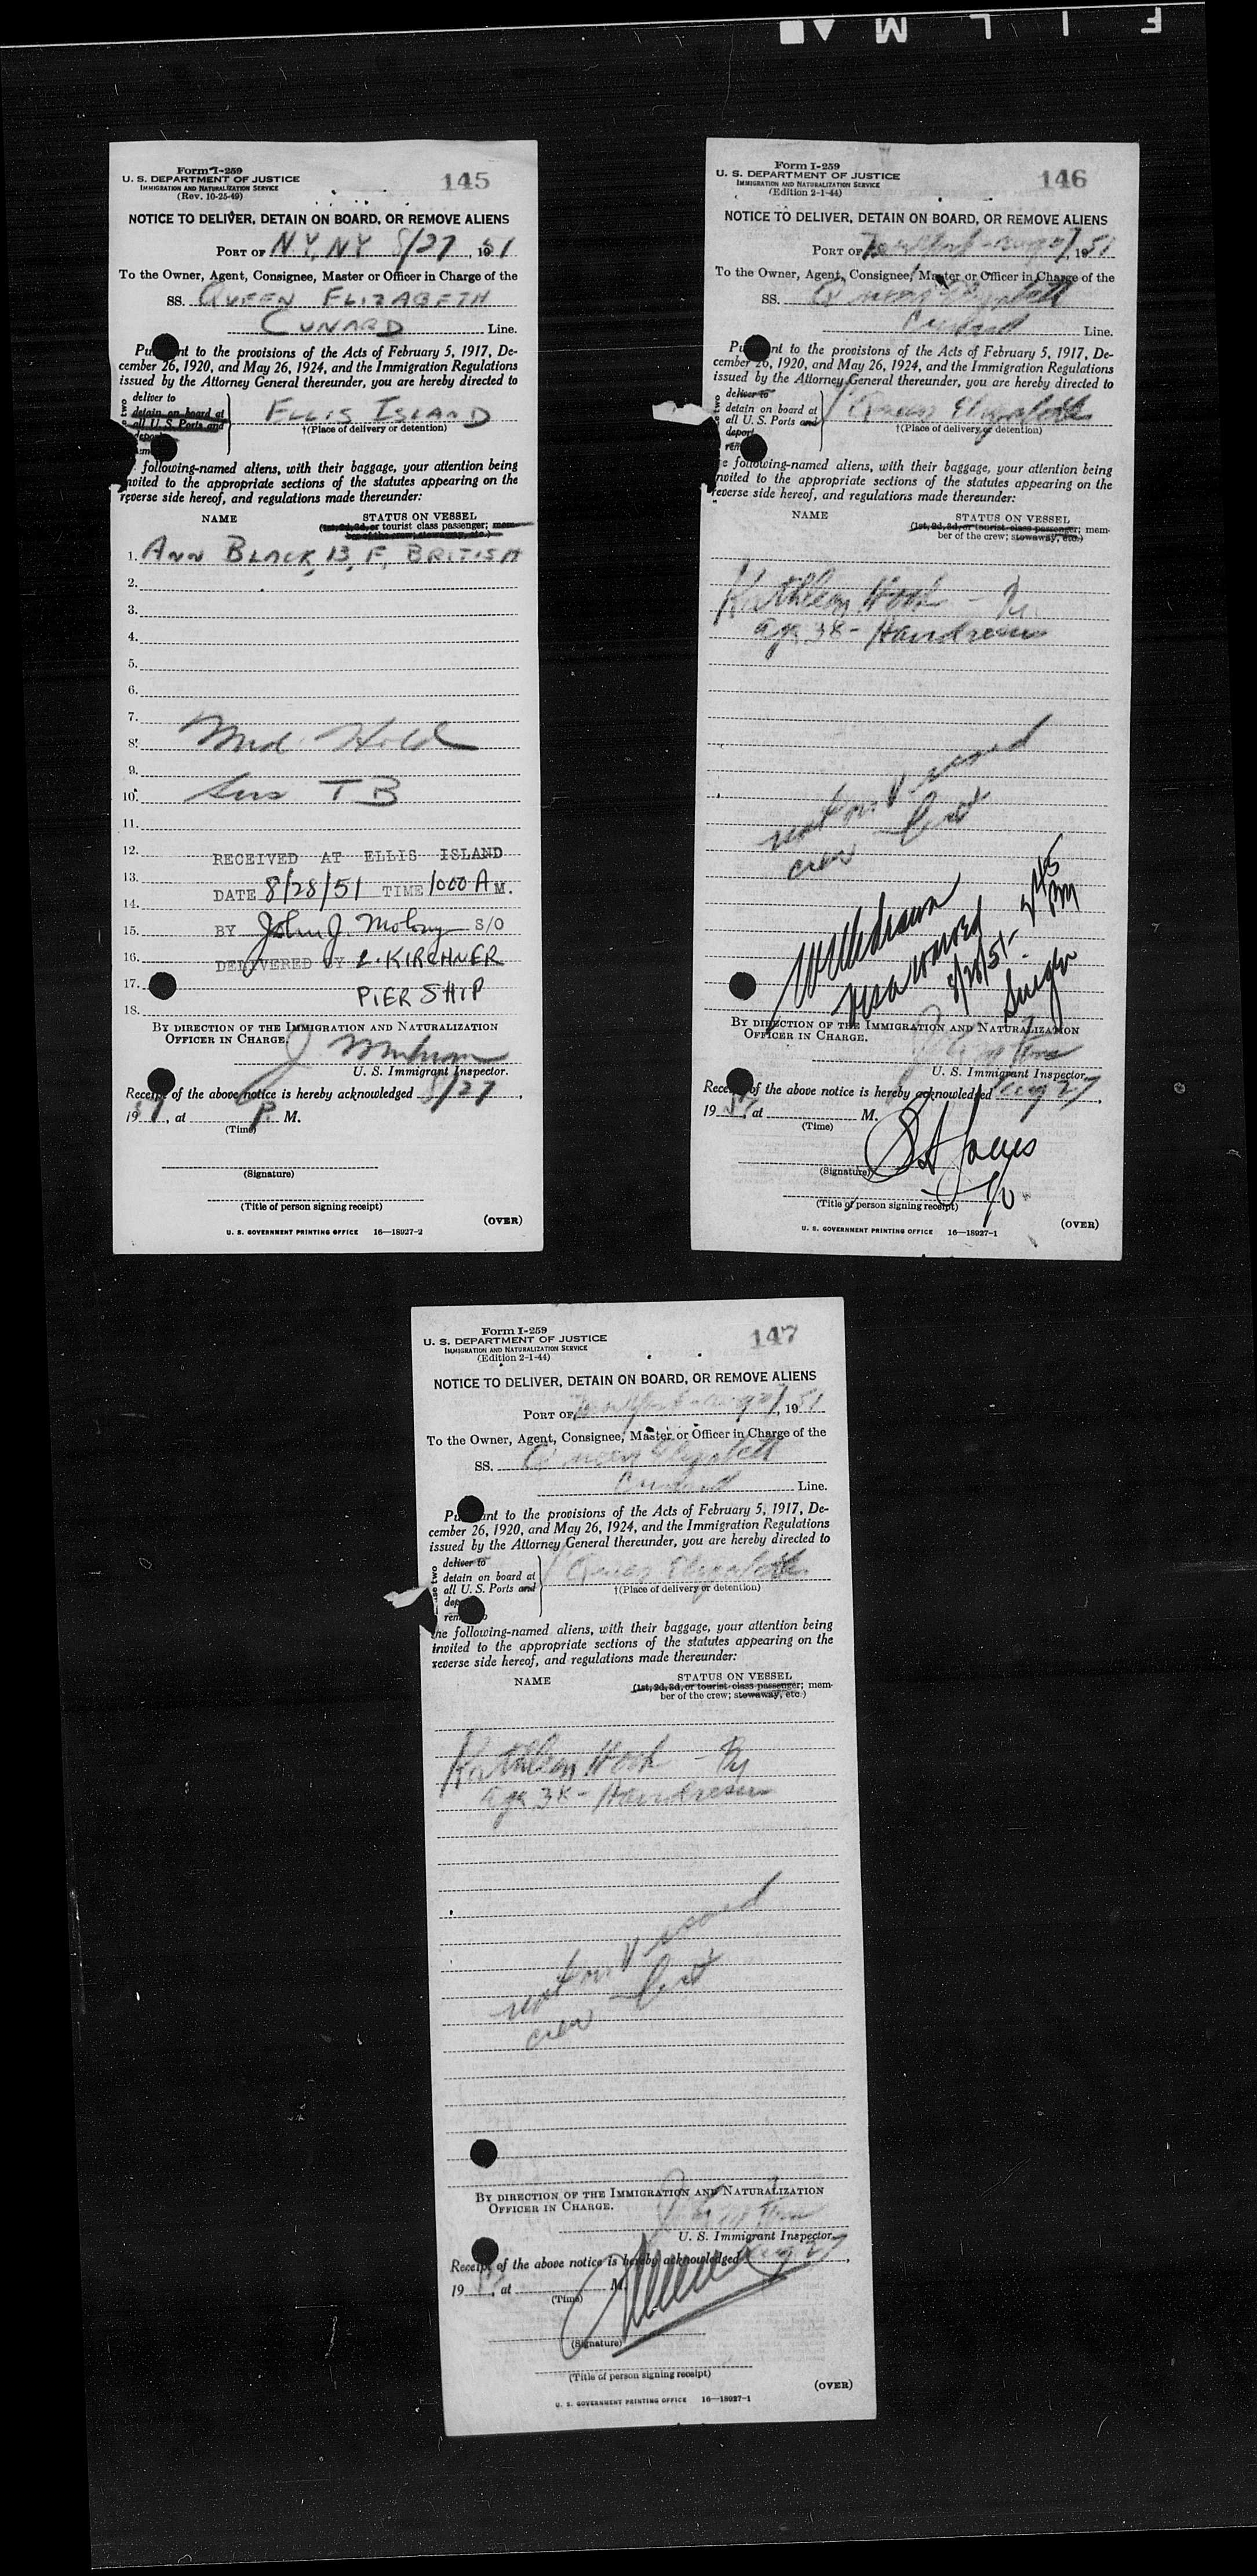 F I L M
Form I-259
U. S. DEPARTMENT OF JUSTICE
IMMIGRATION AND NATURALIZATION SERVICE
(Rev. 10-25-49)
145
NOTICE TO DELIVER, DETAIN ON BOARD, OR REMOVE ALIENS
PORT OF N.Y, NY 8/27, 1951
To the Owner, Agent, Consignee, Master or Officer in Charge of the
SS. QUEEN ELIZABETH
CUNARD Line.
Pu nt to the provisions of the Acts of February 5, 1917, De-
cember 26, 1920, and May 26, 1924, and the Immigration Regulations
issued by the Attorney General thereunder, you are hereby directed to
deliver to
detain on board at
all U. S. Ports and
ELLIS ISLAND
†(Place of delivery or detention)
following-named aliens, with their baggage, your attention being
invited to the appropriate sections of the statutes appearing on the
reverse side hereof, and regulations made thereunder:
NAME STATUS ON VESSEL
(1st, 2d, 3d, or tourist class passenger; mem-
ber of the crew; stowaway, etc.)
1. ANN BLACK, 13, F, BRITISH
2.
3.
4.
5.
6.
7.
8. Med. Hold
9.
10. Sus TB
11.
12. RECEIVED AT ELLIS ISLAND
13. DATE 8/28/51 TIME 1000 A M.
14.
15. BY John J. Molony S/O
16. DELIVERED BY E. KIRCHNER
17. PIER SHIP
18.
BY DIRECTION OF THE IMMIGRATION AND NATURALIZATION
OFFICER IN CHARGE.
U. S. Immigrant Inspector.
Receipt of the above notice is hereby acknowledged 8/27,
1951, at P. M.
(Time)
(Signature)
(Title of person signing receipt)
(OVER)
U. S. GOVERNMENT PRINTING OFFICE 16—18927-2
Form I-259
U. S. DEPARTMENT OF JUSTICE
IMMIGRATION AND NATURALIZATION SERVICE
(Edition 2-1-44)
146
NOTICE TO DELIVER, DETAIN ON BOARD, OR REMOVE ALIENS
PORT OF New York - Aug 27, 1951
To the Owner, Agent, Consignee, Master or Officer in Charge of the
SS. Queen Elizabeth
Cunard Line.
Pu nt to the provisions of the Acts of February 5, 1917, De-
cember 26, 1920, and May 26, 1924, and the Immigration Regulations
issued by the Attorney General thereunder, you are hereby directed to
deliver to
detain on board at
all U. S. Ports and
deport
Queen Elizabeth
†(Place of delivery or detention)
following-named aliens, with their baggage, your attention being
invited to the appropriate sections of the statutes appearing on the
reverse side hereof, and regulations made thereunder:
NAME STATUS ON VESSEL
(1st, 2d, 3d, or tourist class passenger; mem-
ber of the crew; stowaway, etc.)
Kathleen Hook - Br
age 38 - Hairdresser
not on Visaed
crew list
Withdrawn
Visa waived
8/28/51 - 2 45 PM
BY DIRECTION OF THE IMMIGRATION AND NATURALIZATION
OFFICER IN CHARGE.
U. S. Immigrant Inspector.
Receipt of the above notice is hereby acknowledged Aug 27,
1951, at M.
(Time)
(Signature)
(Title of person signing receipt)
(OVER)
U. S. GOVERNMENT PRINTING OFFICE 16—18927-1
Form I-259
U. S. DEPARTMENT OF JUSTICE
IMMIGRATION AND NATURALIZATION SERVICE
(Edition 2-1-44)
147
NOTICE TO DELIVER, DETAIN ON BOARD, OR REMOVE ALIENS
PORT OF New York - Aug 27, 1951
To the Owner, Agent, Consignee, Master or Officer in Charge of the
SS. Queen Elizabeth
Cunard Line.
Pu ant to the provisions of the Acts of February 5, 1917, De-
cember 26, 1920, and May 26, 1924, and the Immigration Regulations
issued by the Attorney General thereunder, you are hereby directed to
deliver to
detain on board at
all U. S. Ports and
Queen Elizabeth
†(Place of delivery or detention)
the following-named aliens, with their baggage, your attention being
invited to the appropriate sections of the statutes appearing on the
reverse side hereof, and regulations made thereunder:
NAME STATUS ON VESSEL
(1st, 2d, 3d, or tourist class passenger; mem-
ber of the crew; stowaway, etc.)
Kathleen Hook - Br
age 38 - Hairdresser
not on Visaed
crew list
BY DIRECTION OF THE IMMIGRATION AND NATURALIZATION
OFFICER IN CHARGE.
U. S. Immigrant Inspector.
Receipt of the above notice is hereby acknowledged Aug 27,
1951, at M.
(Time)
(Signature)
(Title of person signing receipt)
(OVER)
U. S. GOVERNMENT PRINTING OFFICE 16—18927-1